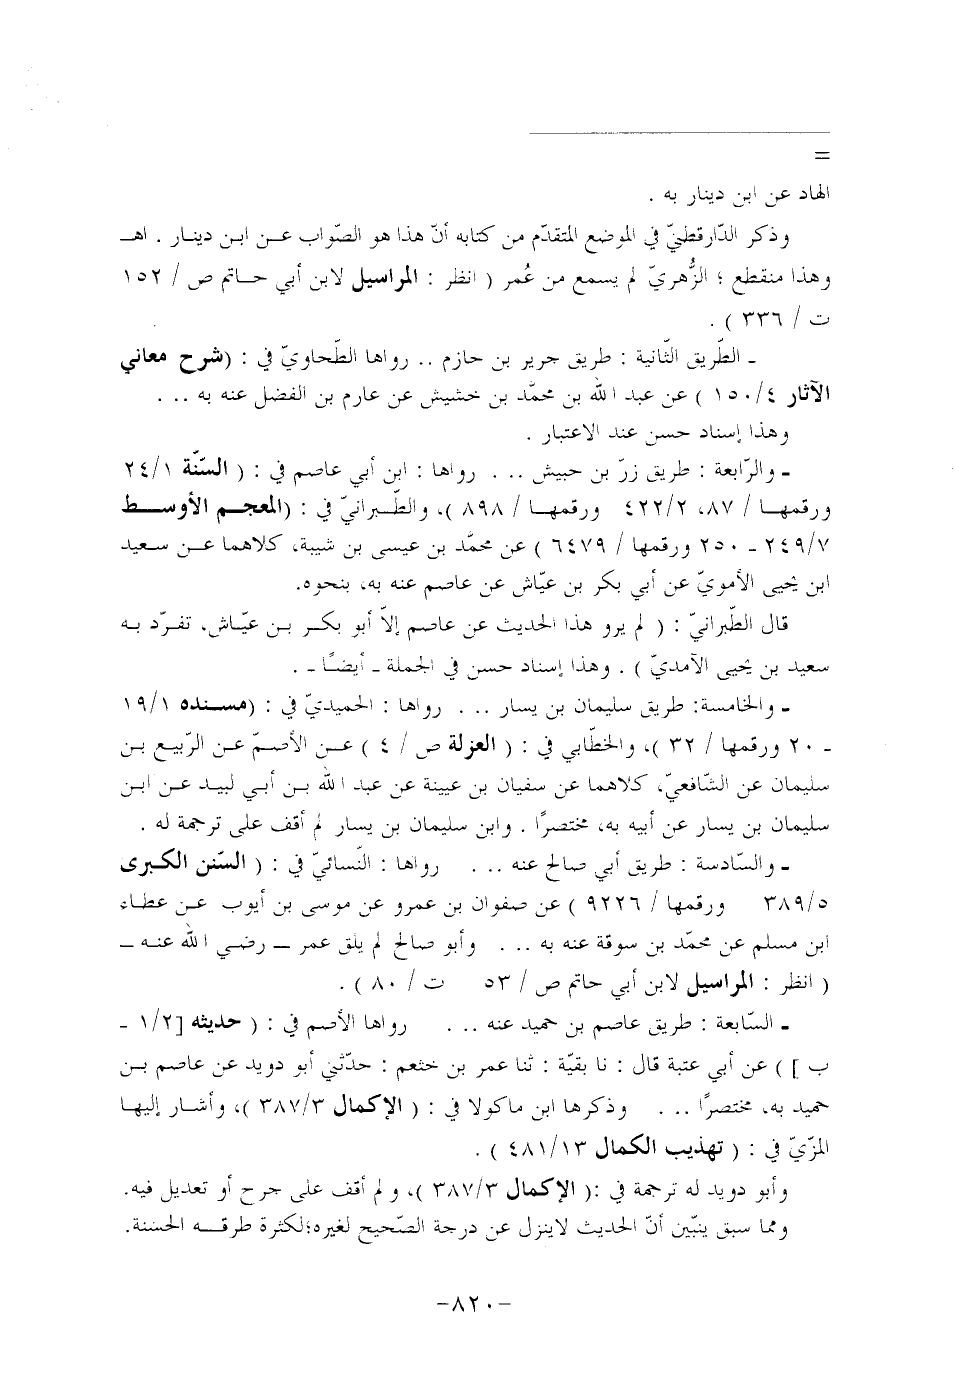 =
الهاد عن ابن دينار به .
وذكر الدّارقطنيّ في الموضع المتقدّم من كتابه أنّ هذا هو الصّواب عـن ابـن دينـار . اهـ
وهذا منقطع ؛ الزُّهريّ لم يسمع من عُمر ( انظر : المراسيل لابن أبي حـاتم ص / ١٥٢
ت / ٣٣٦ ) .
ـ الطّريق الثّانية : طريق جرير بن حازم .. رواها الطّحاويّ في : (شرح معاني
الآثار ١٥٠/٤ ) عن عبد الله بن محمّد بن خشيش عن عارم بن الفضل عنه به ...
وهذا إسناد حسن عند الاعتبار .
ـ والرّابعة : طريق زرّ بن حبيش ... رواها : ابن أبي عاصم في : ( السّنّة ٢٤/١
ورقمهـا / ٨٧، ٤٢٢/٢ ورقمهـا / ٨٩٨ )، والطّـبرانيّ في : (المعجـم الأوسـط
٢٤٩/٧ ـ ٢٥٠ ورقمها / ٦٤٧٩ ) عن محمّد بن عيسى بن شيبة، كلاهما عـن سعيد
ابن يحيى الأمويّ عن أبي بكر بن عيّاش عن عاصم عنه به، بنحوه.
قال الطّبرانيّ : ( لم يرو هذا الحديث عن عاصم إلاّ أبو بكـر بـن عيّـاش، تفـرّد بـه
سعيد بن يحيى الآمديّ ) . وهذا إسناد حسن في الجملة ـ أيضًـا ـ .
ـ والخامسة: طريق سليمان بن يسار ... رواها : الحميديّ في : (مسـنده ١٩/١
ـ ٢٠ ورقمها / ٣٢ )، والخطّابي في : ( العزلة ص / ٤ ) عـن الأصـمّ عـن الرّبيع بـن
سليمان عن الشّافعيّ، كلاهما عن سفيان بن عيينة عن عبد الله بـن أبـي لبيـد عـن ابـن
سليمان بن يسار عن أبيه به، مختصرًا . وابن سليمان بن يسار لم أقف على ترجمة له .
ـ والسّادسة : طريق أبي صالح عنه ... رواها : النّسائيّ في : ( السّنن الكـبرى
٣٨٩/٥ ورقمها / ٩٢٢٦ ) عن صفوان بن عمرو عن موسى بن أيوب عـن عطـاء
ابن مسلم عن محمّد بن سوقة عنه به ... وأبو صالح لم يلق عمر ـ رضـي الله عنـه ـ
( انظر : المراسيل لابن أبي حاتم ص / ٥٣ ت / ٨٠ ) .
ـ السّابعة : طريق عاصم بن حميد عنه ... رواها الأصم في : ( حديثه [١/٢ ـ
ب ] ) عن أبي عتبة قال : نا بقيّة : ثنا عمر بن خثعم : حدّثني أبو دويد عن عاصم بـن
حميد به، مختصرًا ... وذكرها ابن ماكولا في : ( الإكمال ٣٨٧/٣ )، وأشـار إليهـا
المزّيّ في : ( تهذيب الكمال ٤٨١/١٣ ) .
وأبو دويد له ترجمة في :( الإكمال ٣٨٧/٣ )، و لم أقف على جرح أو تعديل فيه.
ومما سبق يتبّين أنّ الحديث لاينزل عن درجة الصّحيح لغيره؛لكثرة طرقـه الحسَنة.
-٨٢٠-